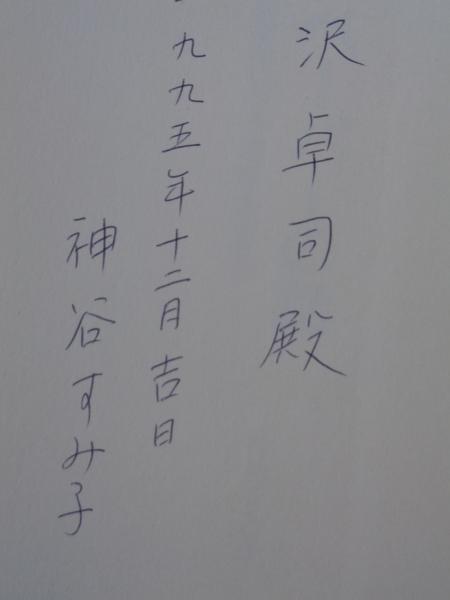 沢卓司殿
九九五年十二月吉日
神谷すみ子